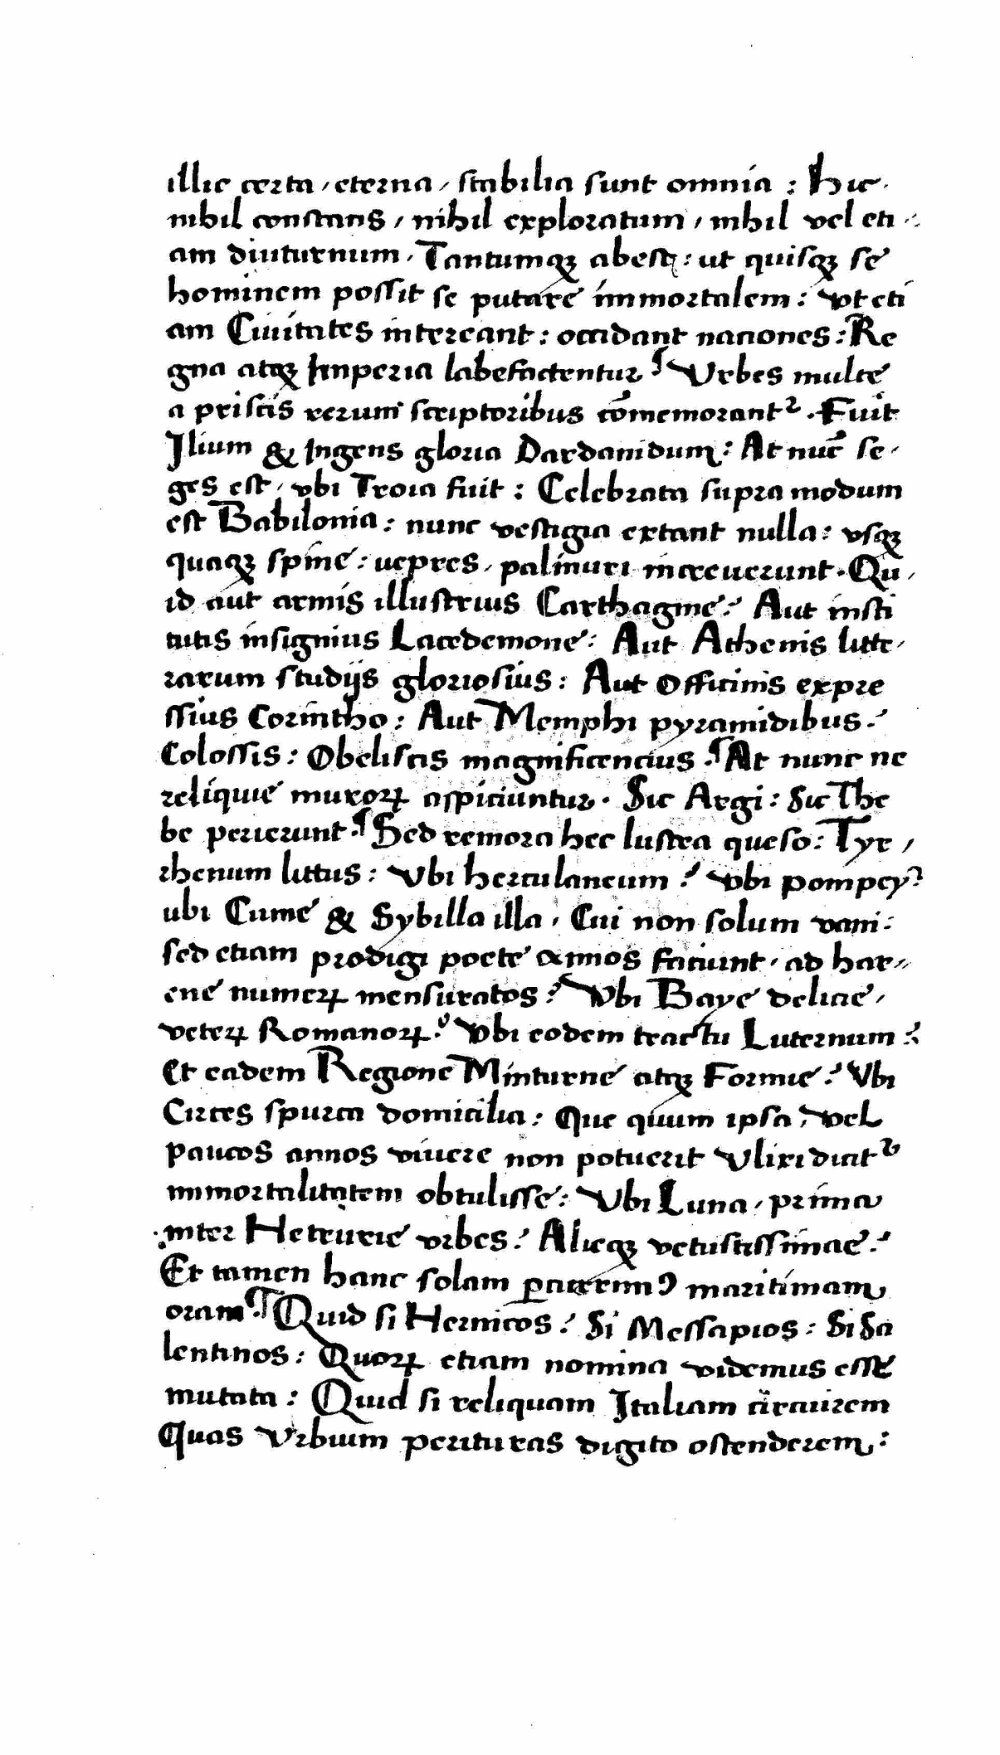 illic certa / eterna / stabilia sunt omnia : Hic.
nihil constans / nihil exploratum / nihil vel eti-
am diuturnum . Tantumqꝫ abest : ut quisqꝫ se
hominem possit se putare immortalem : vt eti
am Ciuitates intereant : occidant naciones : Re
gna atqꝫ Imperia labefactentur ¶ Vrbes multe
a priscis rerum scriptoribus cōmemorantᷣ . Fuit
Ilium & Ingens gloria Dardanidum : At nūc se-
ges est / vbi Troia fuit : Celebrata supra modum
est Babilonia : nunc vestigia extant nulla : vsqꝫ
quaqꝫ spine : uepres / palinuri increuerunt . Qu-
id aut armis illustrius Carthagine ? Aut insti
tutis insignius Lacedemone : Aut Athenis litte-
rarum studijs gloriosius : Aut officinis expre
ssius Corintho : Aut Memphi pyramidibus .
Colossis : Obeliscis magnificencius . ¶ At nunc ne
reliquie muroꝝ aspiciuntur . Sic Argi : Sic The
be perierunt . ¶ Sed remora hec lustra queso : Tyr-
rhenum littus : Vbi herculaneum ? vbi pompey ?
ubi Cume & Sybilla illa . Cui non solum vani :
sed etiam prodigi poete annos faciunt . ad har-
ene numeꝝ mensuratos ? Vbi Baye delicie /
veteꝝ Romanoꝝ ? Vbi eodem tractu Luternum ?
Et eadem Regione Minturne atqꝫ Formie ? Vbi
Circes spurca domicilia : Que quum ipsa / vel
paucos annos viuere non potuerit Vlixi dicitᷣ
immortalitatem obtulisse : Vbi Luna / prima
inter Hetrurie vrbes ? Alieqꝫ vetustissimae ?
Et tamen hanc solam ꝑcurrimꝰ maritimam
oram . ¶ Quid si Hernicos ? Si Messapios : Si Sa
lentinos : Quoꝝ etiam nomina videmus esse
mutata : Quid si reliquam Italiam circuirem
Quas Vrbium perituras digito ostenderem :